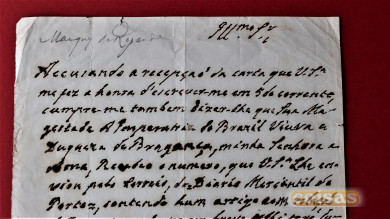 Marquez de Rezende
Illmo Sr
Accusando a recepção da carta que V. Sa.
me fez a honra d'escrever-me em 5 do corrente,
cumpre-me tambem dizer-lhe que Sua Ma-
gestade A Imperatriz do Brazil Viuva e
Duqueza de Bragança, minha Senhora e
Ama, Recebeo o numero, que V. Sa. Lhe en-
viou pelo Correio, do Diario Mercantil do
Porto, contendo hum artigo com
coisas